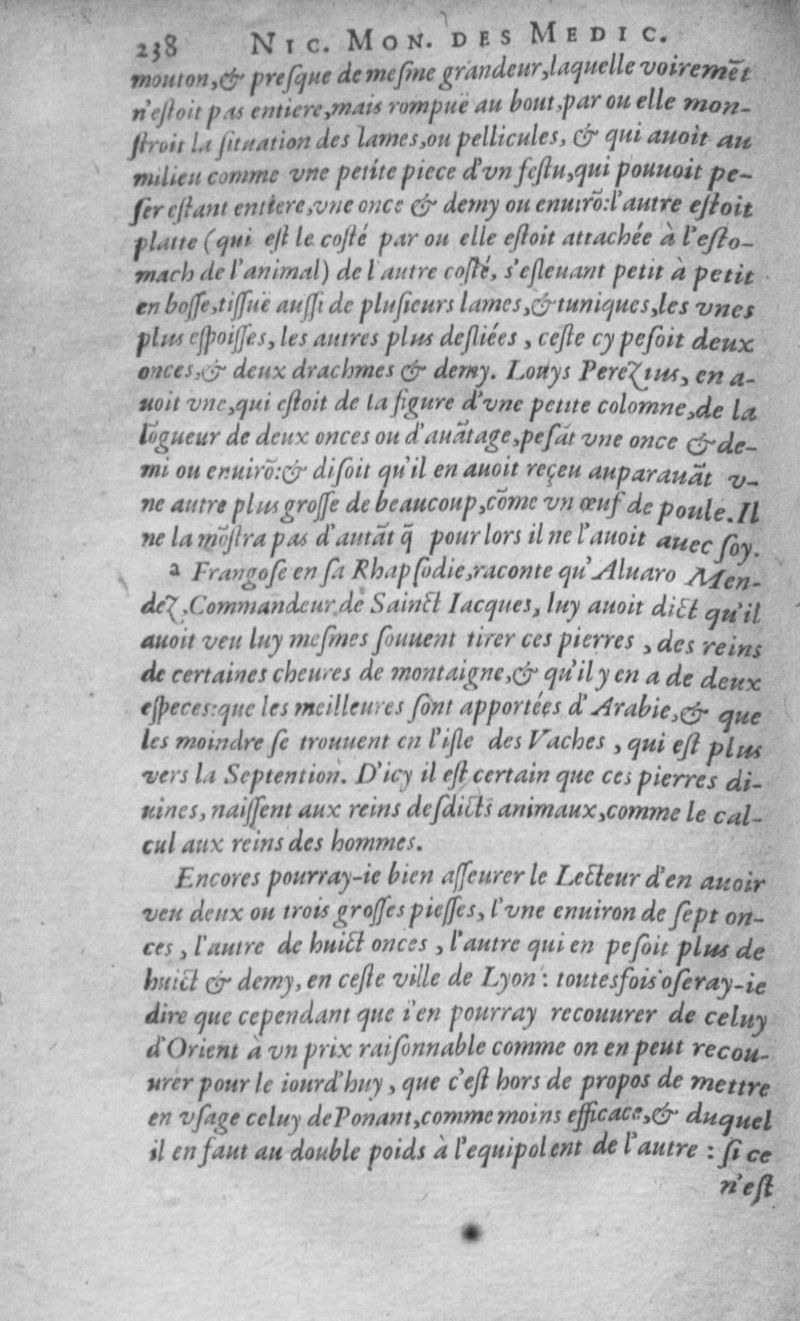 238 NIC. MON. DES MEDIC.
mouton,& preſque de meſme grandeur,laquelle voiremẽt
n'eſtoit pas entiere,mais rompuë au bout,par ou elle mon-
ſtroit la ſituation des lames,ou pellicules, & qui auoit au
milieu comme vne petite piece d'vn feſtu,qui pouuoit pe-
ſer eſtant entiere,vne once & demy ou enuirõ:l'autre eſtoit
platte (qui eſt le coſté par ou elle eſtoit attachée à l'eſto-
mach de l'animal) de l'autre coſté, s'eſleuant petit à petit
en boſſe,tiſſuë auſſi de pluſieurs lames,& tuniques,les vnes
plus eſpoiſſes, les autres plus deſliées , ceſte cy peſoit deux
onces,& deux drachmes & demy. Louys Perezius, en a-
uoit vne,qui eſtoit de la figure d'vne petite colomne,de la
lõgueur de deux onces ou d'auãtage,peſãt vne once & de-
mi ou enuirõ:& diſoit qu'il en auoit reçeu auparauãt v-
ne autre plus groſſe de beaucoup,cõme vn œuf de poule.Il
ne la mõſtra pas d'autãt q̃ pour lors il ne l'auoit auec ſoy.
a Frangoſe en ſa Rhapſodie,raconte qu'Aluaro Men-
dez,Commandeur de Sainct Iacques, luy auoit dict qu'il
auoit veu luy meſmes ſouuent tirer ces pierres , des reins
de certaines cheures de montaigne,& qu'il y en a de deux
eſpeces:que les meilleures ſont apportées d'Arabie,& que
les moindre ſe trouuent en l'iſle des Vaches , qui eſt plus
vers la Septention. D'icy il eſt certain que ces pierres di-
uines, naiſſent aux reins deſdicts animaux,comme le cal-
cul aux reins des hommes.
Encores pourray-ie bien aſſeurer le Lecteur d'en auoir
veu deux ou trois groſſes pieſſes, l'vne enuiron de ſept on-
ces , l'autre de huict onces , l'autre qui en peſoit plus de
huict & demy, en ceſte ville de Lyon : toutesfois oſeray-ie
dire que cependant que i'en pourray recouurer de celuy
d'Orient à vn prix raiſonnable comme on en peut recou-
urer pour le iourd'huy , que c'eſt hors de propos de mettre
en vſage celuy de Ponant,comme moins efficace,& duquel
il en faut au double poids à l'equipolent de l'autre : ſi ce
n'eſt